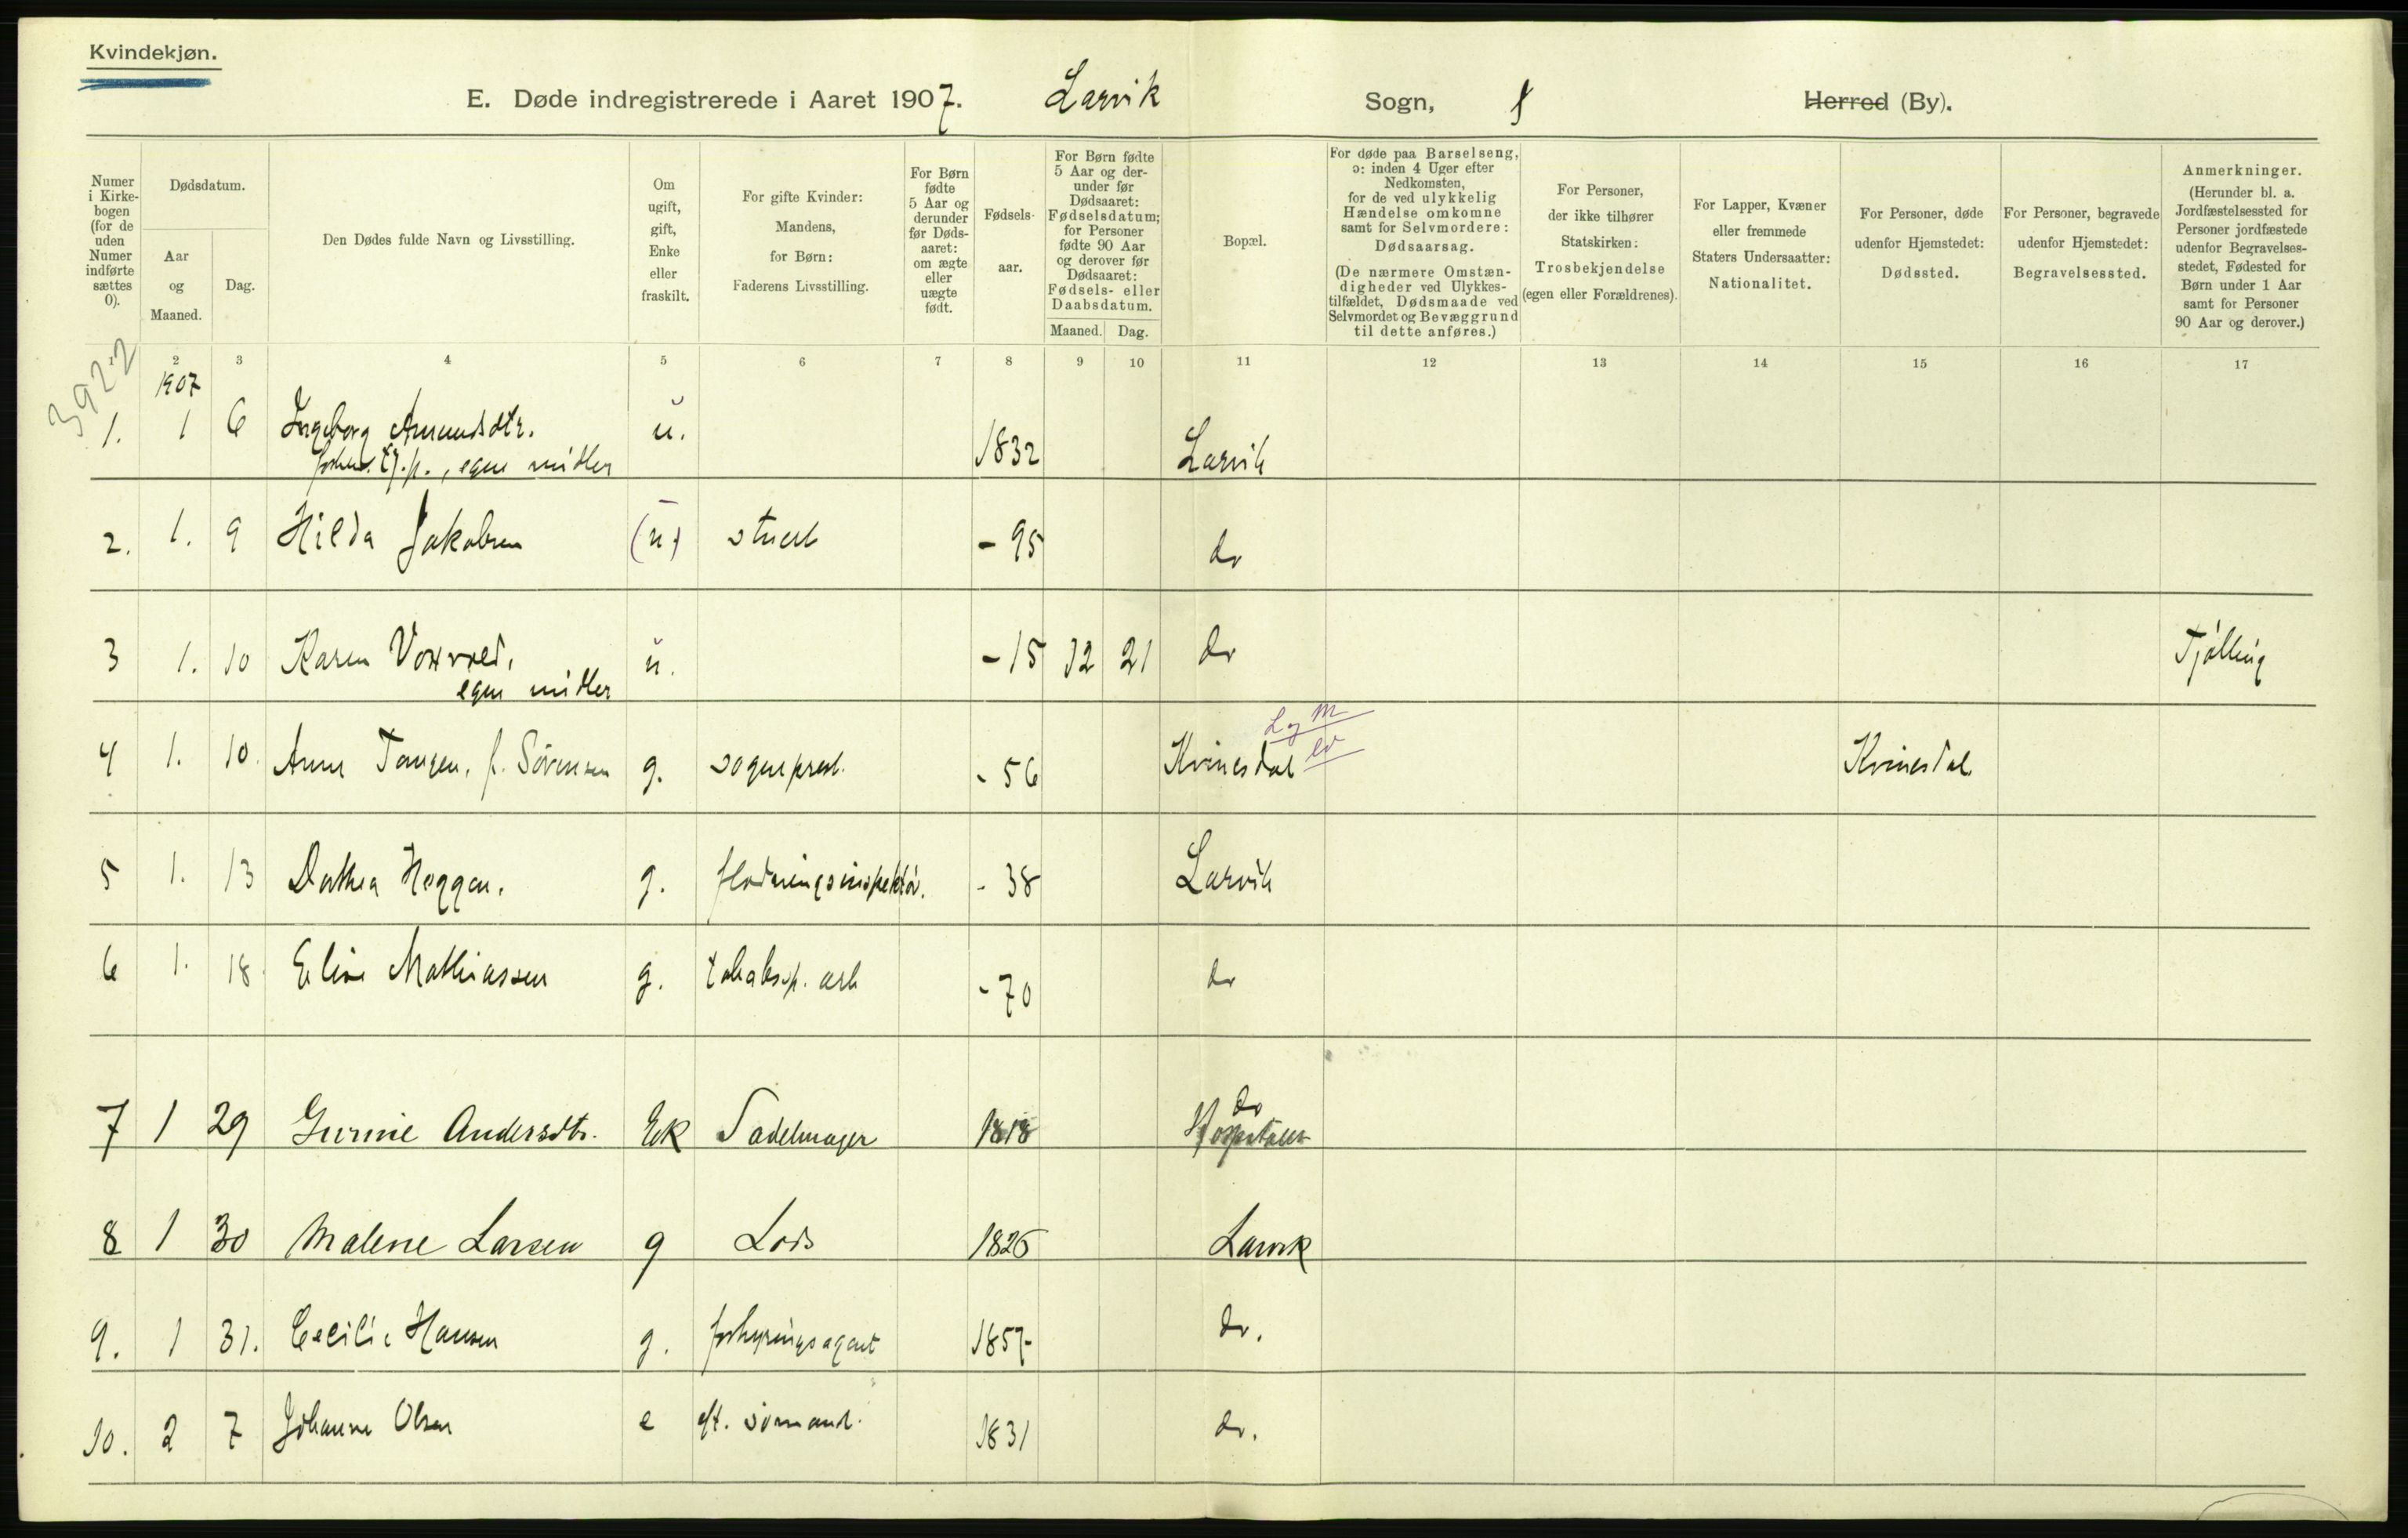 Kvindekjøn.
E. Døde indregistrerede i Aaret 1907. Larvik Sogn, Herred (By).
Numer i Kirkebogen (for de uden Numer indførte sættes 0).
Dødsdatum.
Aar og Maaned.
Dag.
Den Dødes fulde Navn og Livsstilling.
Om ugift, gift, Enke eller fraskilt.
For gifte Kvinder: Mandens, for Børn: Faderens Livsstilling.
For Børn fødte 5 Aar og derunder før Dødsaaret: om ægte eller uægte født.
Fødselsaar.
For Børn fødte 5 Aar og derunder før Dødsaaret: Fødselsdatum; for Personer fødte 90 Aar og derover før Dødsaaret: Fødsels- eller Daabsdatum.
Maaned. Dag.
Bopæl.
For døde paa Barselseng, ɔ: inden 4 Uger efter Nedkomsten, for de ved ulykkelig Hændelse omkomne samt for Selvmordere: Dødsaarsag.
(De nærmere Omstændigheder ved Ulykkestilfældet, Dødsmaade ved Selvmordet og Bevæggrund til dette anføres.)
For Personer, der ikke tilhører Statskirken: Trosbekjendelse (egen eller Forældrenes).
For Lapper, Kvæner eller fremmede Staters Undersaatter: Nationalitet.
For Personer, døde udenfor Hjemstedet: Dødssted.
For Personer, begravede udenfor Hjemstedet: Begravelsessted.
Anmerkninger.
(Herunder bl. a. Jordfæstelsessted for Personer jordfæstede udenfor Begravelsesstedet, Fødested for Børn under 1 Aar samt for Personer 90 Aar og derover.)
2 3 4 5 6 7 8 9 10 11 12 13 14 15 16 17
3922
1907
1. 1 6 Ingeborg Amundsdtr. u. 1832 Larvik
forhen. tj.p., egne midler
2. 1. 9 Hilda Jakobsen (u) - 95 do
3 1. 10 Karen u. - 15 12 21 do Tjølling
egne midler
4 1. 10. Anne Tangen, f. Sörensen g. sogneprest. - 56 Kvinesdal Kvinesdal
5 1. 13 Dorthea Heggen. g. flødningsinspektör. - 38 Larvik
6 1. 18 Eline Mathiassen g. tobaksp. arb - 70 do
7 1 29 Gurine Andersdtr. Ek Sadelmager 1818 do
Hospitalet
8 1 30 Malene Larsen g Lods 1826 Larvik
9. 1 31. Cecilie Hansen g. forhyringsagent 1857 do.
10. 2 7 Johanne Olsen e eft. sömand. 1831 do.